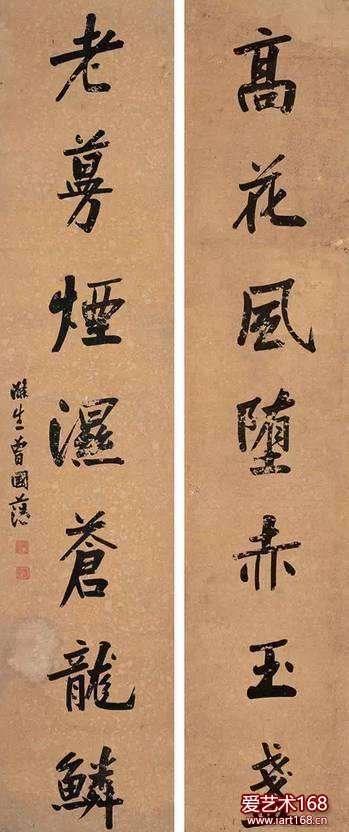 高花風堕赤玉盞
老蔓煙濕蒼龍鱗
滌生曾國藩
爱艺术168
www.iart168.cn